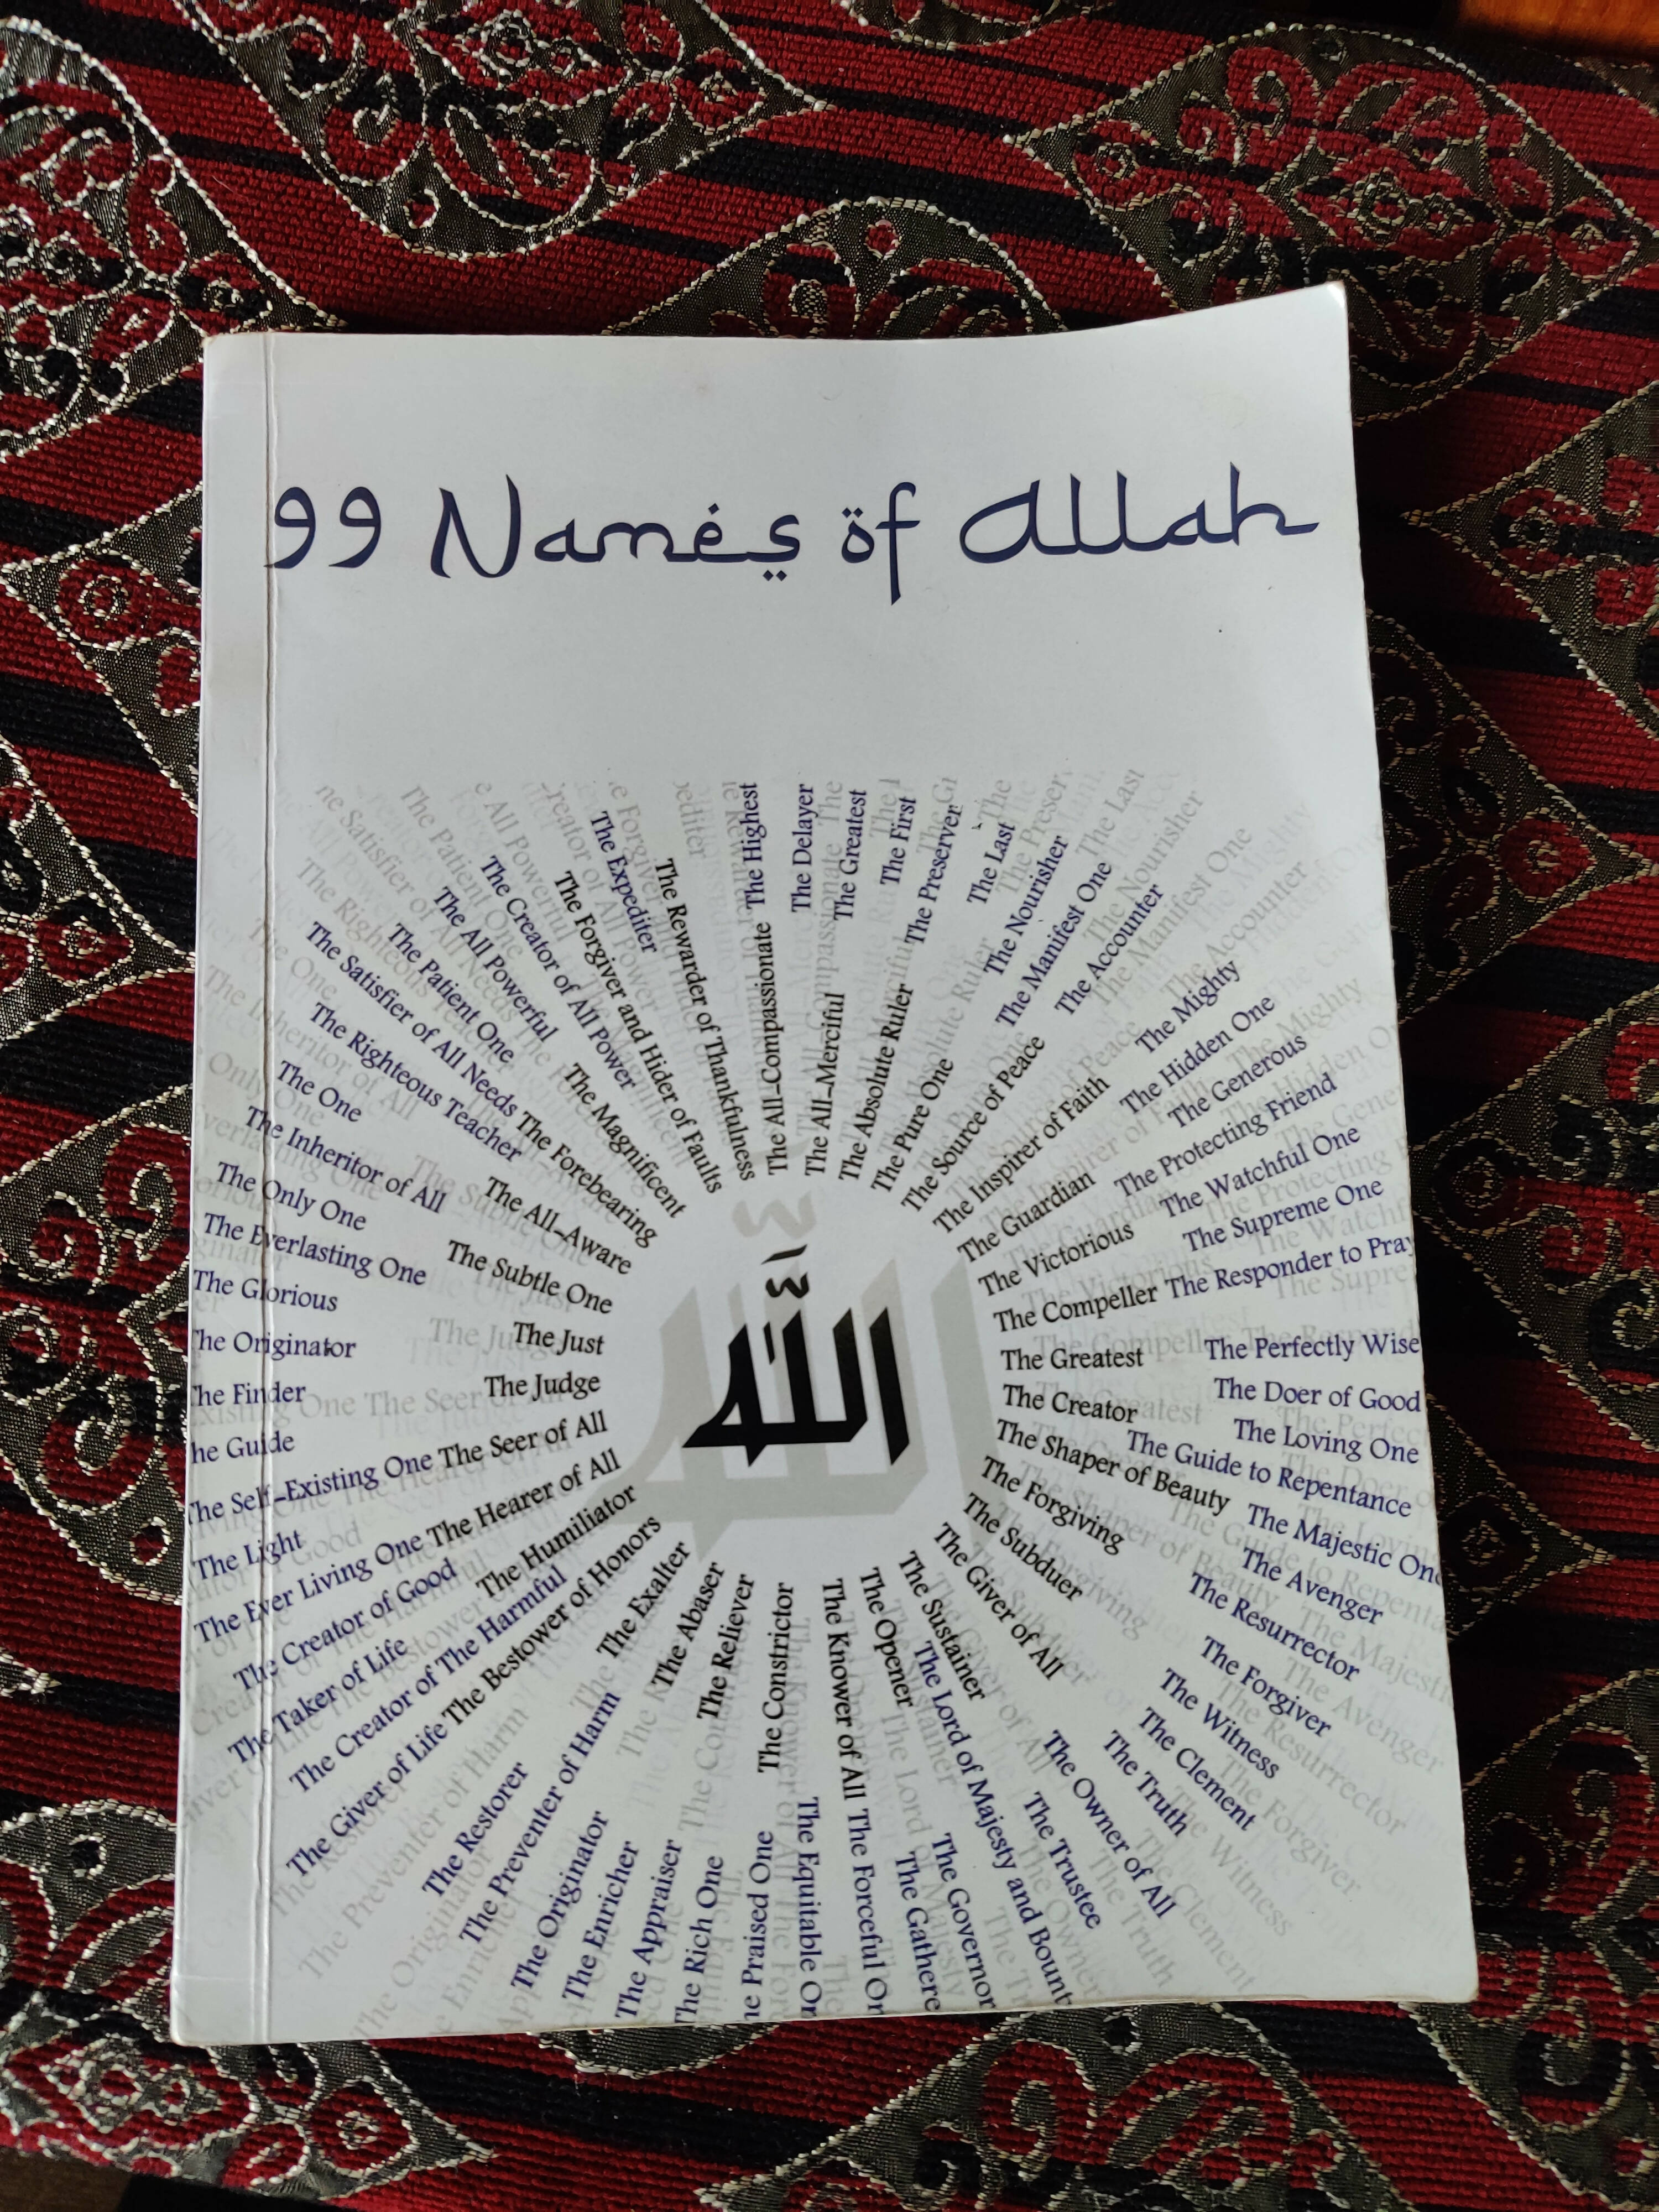 99 Names of Allah
The All-Compassionate
The All-Merciful
The Absolute Ruler
The Pure One
The Source of Peace
The Inspirer of Faith
The Guardian
The Victorious
The Compeller
The Greatest
The Creator
The Shaper of Beauty
The Forgiving
The Subduer
The Giver of All
The Sustainer
The Opener
The Knower of All
The Constrictor
The Reliever
The Abaser
The Exalter
The Bestower of Honors
The Humiliator
The Hearer of All
The Seer of All
The Judge
The Just
The Subtle One
The All-Aware
The Forebearing
The Magnificent
The Forgiver and Hider of Faults
The Rewarder of Thankfulness
The Highest
The Greatest
The Preserver
The Nourisher
The Accounter
The Mighty
The Generous
The Watchful One
The Responder to Pray
The Perfectly Wise
The Loving One
The Majestic One
The Resurrector
The Witness
The Truth
The Trustee
The Forceful On
The Governor
The Praised One
The Appraiser
The Originator
The Restorer
The Giver of Life
The Taker of Life
The Ever Living One
The Self-Existing One
The Finder
The Glorious
The Only One
The One
The Satisfier of All Needs
The All Powerful
The Creator of All Power
The Expediter
The Delayer
The First
The Last
The Manifest One
The Hidden One
The Protecting Friend
The Supreme One
The Doer of Good
The Guide to Repentance
The Avenger
The Forgiver
The Clement
The Owner of All
The Lord of Majesty and Bount
The Equitable On
The Gathere
The Rich One
The Enricher
The Preventer of Harm
The Creator of The Harmful
The Creator of Good
The Light
he Guide
The Originator
The Everlasting One
The Inheritor of All
The Righteous Teacher
The Patient One
الله